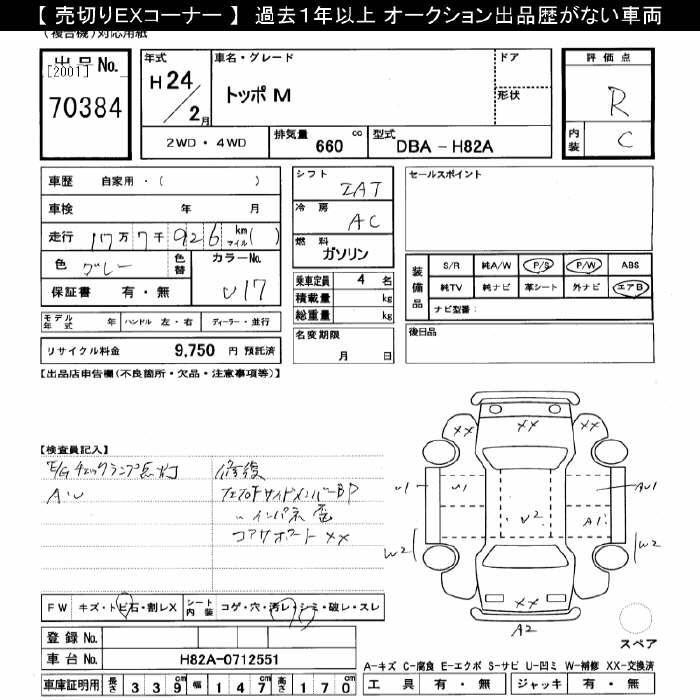 【 売切りEXコーナー 】 過去1年以上 オークション出品歴がない車両
(複合機)対応用紙
出品No.
[2001]
70384
年式
H24
/2月
車名・グレード
トッポ M
ドア
形状
評価点
R
内装
C
2WD・4WD
排気量
660
cc
型式
DBA - H82A
車歴
自家用・( )
車検
年 月
走行
17万7千926
km
マイル
( )
色
グレー
色替
カラーNo.
U17
保証書
有・無
モデル年式
年
ハンドル
左・右
ディーラー・並行
リサイクル料金
9,750
円
預託済
シフト
IAT
冷房
AC
燃料
ガソリン
乗車定員
4
名
積載量
kg
総重量
kg
名変期限
月 日
セールスポイント
装備品
S/R
純A/W
P/S
P/W
ABS
純TV
純ナビ
革シート
外ナビ
エアB
ナビ型番:
後日品
【出品店申告欄(不良箇所・欠品・注意事項等)】
【検査員記入】
E/Gチェックランプ点灯
A・U
修復
左右Fサイドメンバー BP
〃 インパネ 歪
コアサポート XX
XX
XX
XX
U1
U1
AU1
U2
A1
W2
W2
XX
A2
スペア
FW
キズ・トビ石・割レX
シート内装
コゲ・穴・汚レ・シミ・破レ・スレ
登録No.
車台No.
H82A-0712551
車庫証明用
長さ
339
cm
幅
147
cm
高さ
170
cm
A-キズ C-腐食 E-エクボ S-サビ U-凹ミ W-補修 XX-交換済
工具
有・無
ジャッキ
有・無